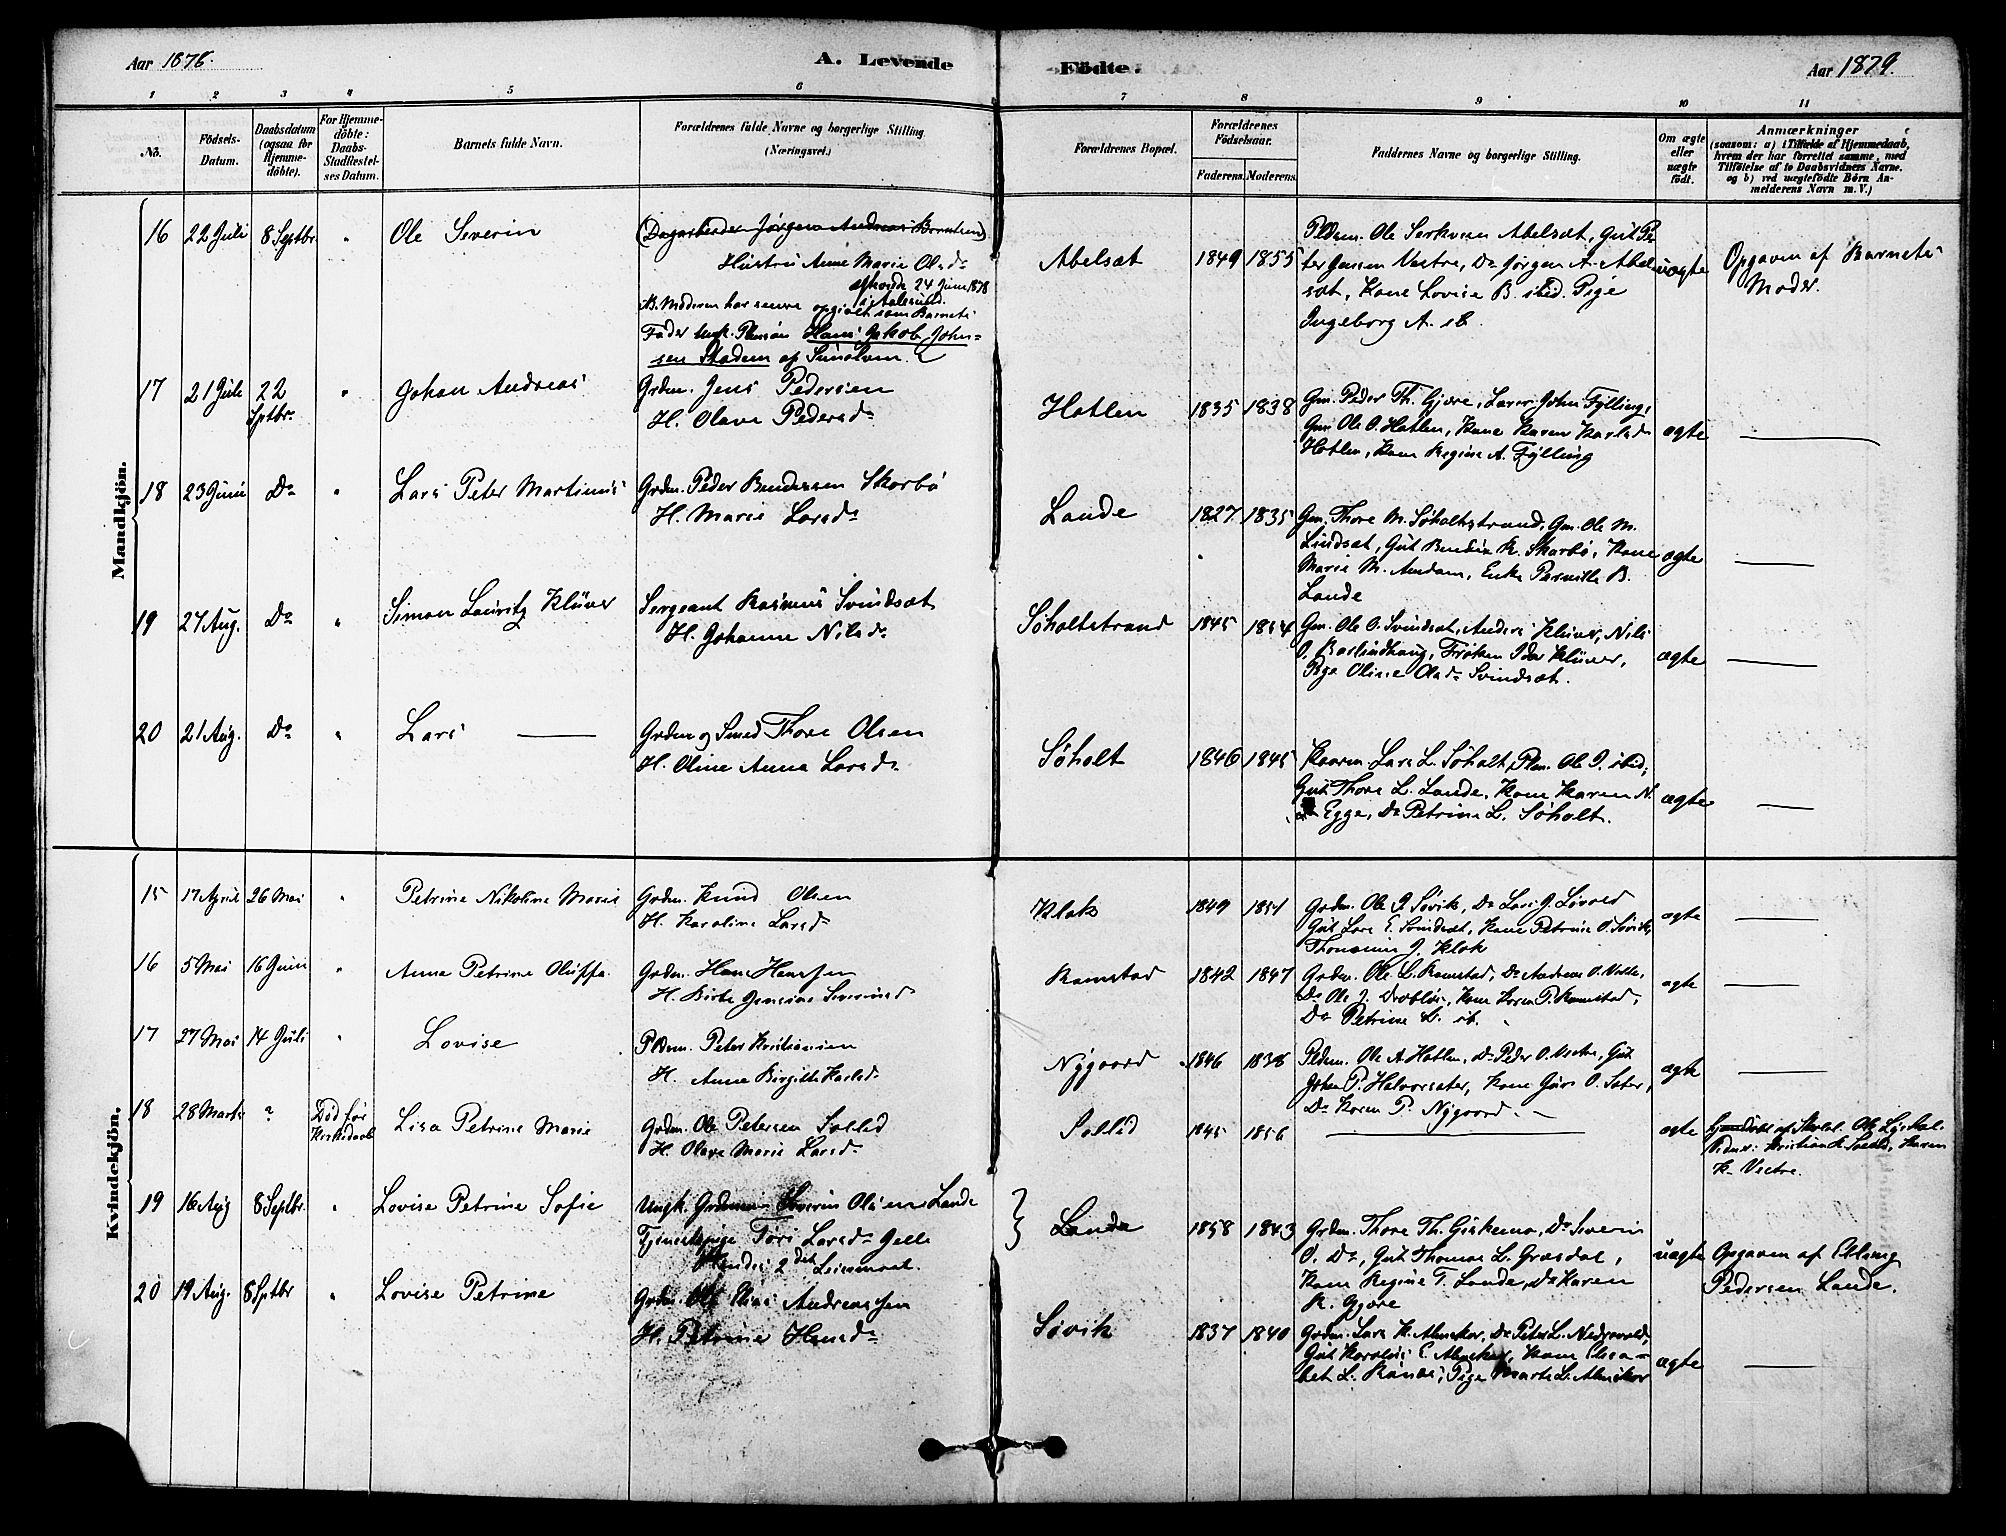 Aar 1878.
A. Levende Födte.
Aar 1879.
1 2 3 4 5 6 7 8 9 10 11
No.
Födsels-
Datum.
Daabsdatum
(ogsaa for
Hjemme-
döbte).
For Hjemme-
döbte:
Daabs-
Stadfestel-
ses Datum.
Barnets fulde Navn.
Forældrenes fulde Navne og borgerlige Stilling.
(Næringsvei.)
Forældrenes Bopæl.
Forældrenes
Födselsaar.
Faderens. Moderens.
Faddernes Navne og borgerlige Stilling.
Om ægte
eller
uægte
födt.
Anmærkninger
(saasom: a) i Tilfælde af Hjemmedaab,
hvem der har forrettet samme, med
Tilföielse af to Daabsvidners Navne.
og b) ved uægtefödte Börn An-
melderens Navn m. V.)
Mandkjön.
16 22 Juli 8 Septbr. " Ole Severin
(Dagarbeider Jørgen Andreas)
Hustru Anne Marie Olsdr
24 Juni 1878
i Aalesund.
NB. Moderen har senere opgivet som Barnets
Fader Ungk. Hans Jakob John-
sen af
Abelsæt 1849 1855
Pldsm. Ole Abelsæt, Gut Pe-
ter Jensen Vestre, Do Jørgen A. Abel-
sæt, Kone Lovise B. ibid. Pige
Ingeborg A. ib
uægte
Opgaven af Barnets
Moder.
17 21 Juli 22 Sptbr. " Johan Andreas
Grdm. Jens Pedersen
H. Olave Pedersdr
Hatlen 1835 1838
Gm. Peder Th. Gjære, Lærer John Fylling,
Gm. Ole O. Hatlen, Kone Karen Karlsdr
Hatlen, Kone Regine A. Fylling
ægte
18 23 Juni Do " Lars Peter Martinus
Grdm. Peder Skorbø
H. Marie Larsdr
Lande 1827 1835
Gm. Thore M. Søholtstrand, Gm. Ole M.
Lindsæt, Gut K. Skarbø, Kone
Marie M. Amdam, Enke Pernille B.
Lande
ægte
19 27 Aug. Do " Simon Lauritz Klüver
Sergeant Rasmus Svindsæt
H. Johanne Nilsdr
Søholtstrand 1845 1854
Gm. Ole O. Svindsæt, Anders Klüver, Nils
O. Barlindhaug, Frøken Ida Klüver,
Pige Oline Olsdr Svindsæt.
ægte
20 21 Aug. Do " Lars
Grdm. og Smed Thore Olsen
H. Oline Anna Larsdr
Søholt 1846 1845
Lars L. Søholt, Plm. Ole I. ibid;
Gut Thore L. Lande, Kone Karen N.
Egge, Do Petrine L. Søholt.
ægte
Kvindekjön.
15 17 April 26 Mai " Petrine Nikoline Marie
Grdm. Knud Olsen
H. Karoline Larsdr
Klok 1849 1851
Grdm. Ole I. Søvik, Do Lars J.
Gut Lars E. Svindsæt, Kone Petrine O. Søvik,
J. Klok
ægte
16 5 Mai 16 Juni " Anna Petrine Oluffa
Grdm. Hans Hanssen
H. Birte Severinsd
Ramstad 1842 1847
Grdm. Ole L. Ramstad, Do Andreas O.
Do Ole J. Kone Karen P. Ramstad,
Do Petrine L. ib.
ægte
17 27 Mai 14 Juli " Lovise
Pldsm. Peter Kristiansen
H. Anne Birgitte Karlsdr
Nygaard 1846 1838
Pldsm. Ole A. Hatlen, Do Peder O. Vestre, Gut
Johan P. Halvorsæter, Kone Guri O. Sæter,
Do Karen P. Nygaard.
ægte
18 28 Marts ? Död før Kirkedaab
Lisa Petrine Marie
Grdm. Ole Petersen Solled
H. Olave Marie Larsdr
Solled 1845 1856
ægte
Hjemdöbt af Skolel. Ole
Vidner: Kristian K. Solled, Karen
K. Vestre.
19 16 Aug 8 Septbr. " Lovise Petrine Sofie
Ungk. Severin Olsen Lande
Tjenestepige Larsdr
Hendes 2det Leiermaal.
Lande 1858 1843
Grdm. Thore Th. Giskemo, Do Severin
O. Do, Gut Thomas L. Græsdal,
Kone Regine T. Lande, Do Karen
K. Gjære
uægte
Opgaven af Elling
Pedersen Lande.
20 19 Aug. 8 Sptbr " Lovise Petrine
Grdm. Ole Andreassen
H. Petrine Hansdr
Søvik 1837 1840
Grdm. Lars K. Do Peter L.
Gut E. Kone Elisa-
bet L. Pige Marte L.
ægte